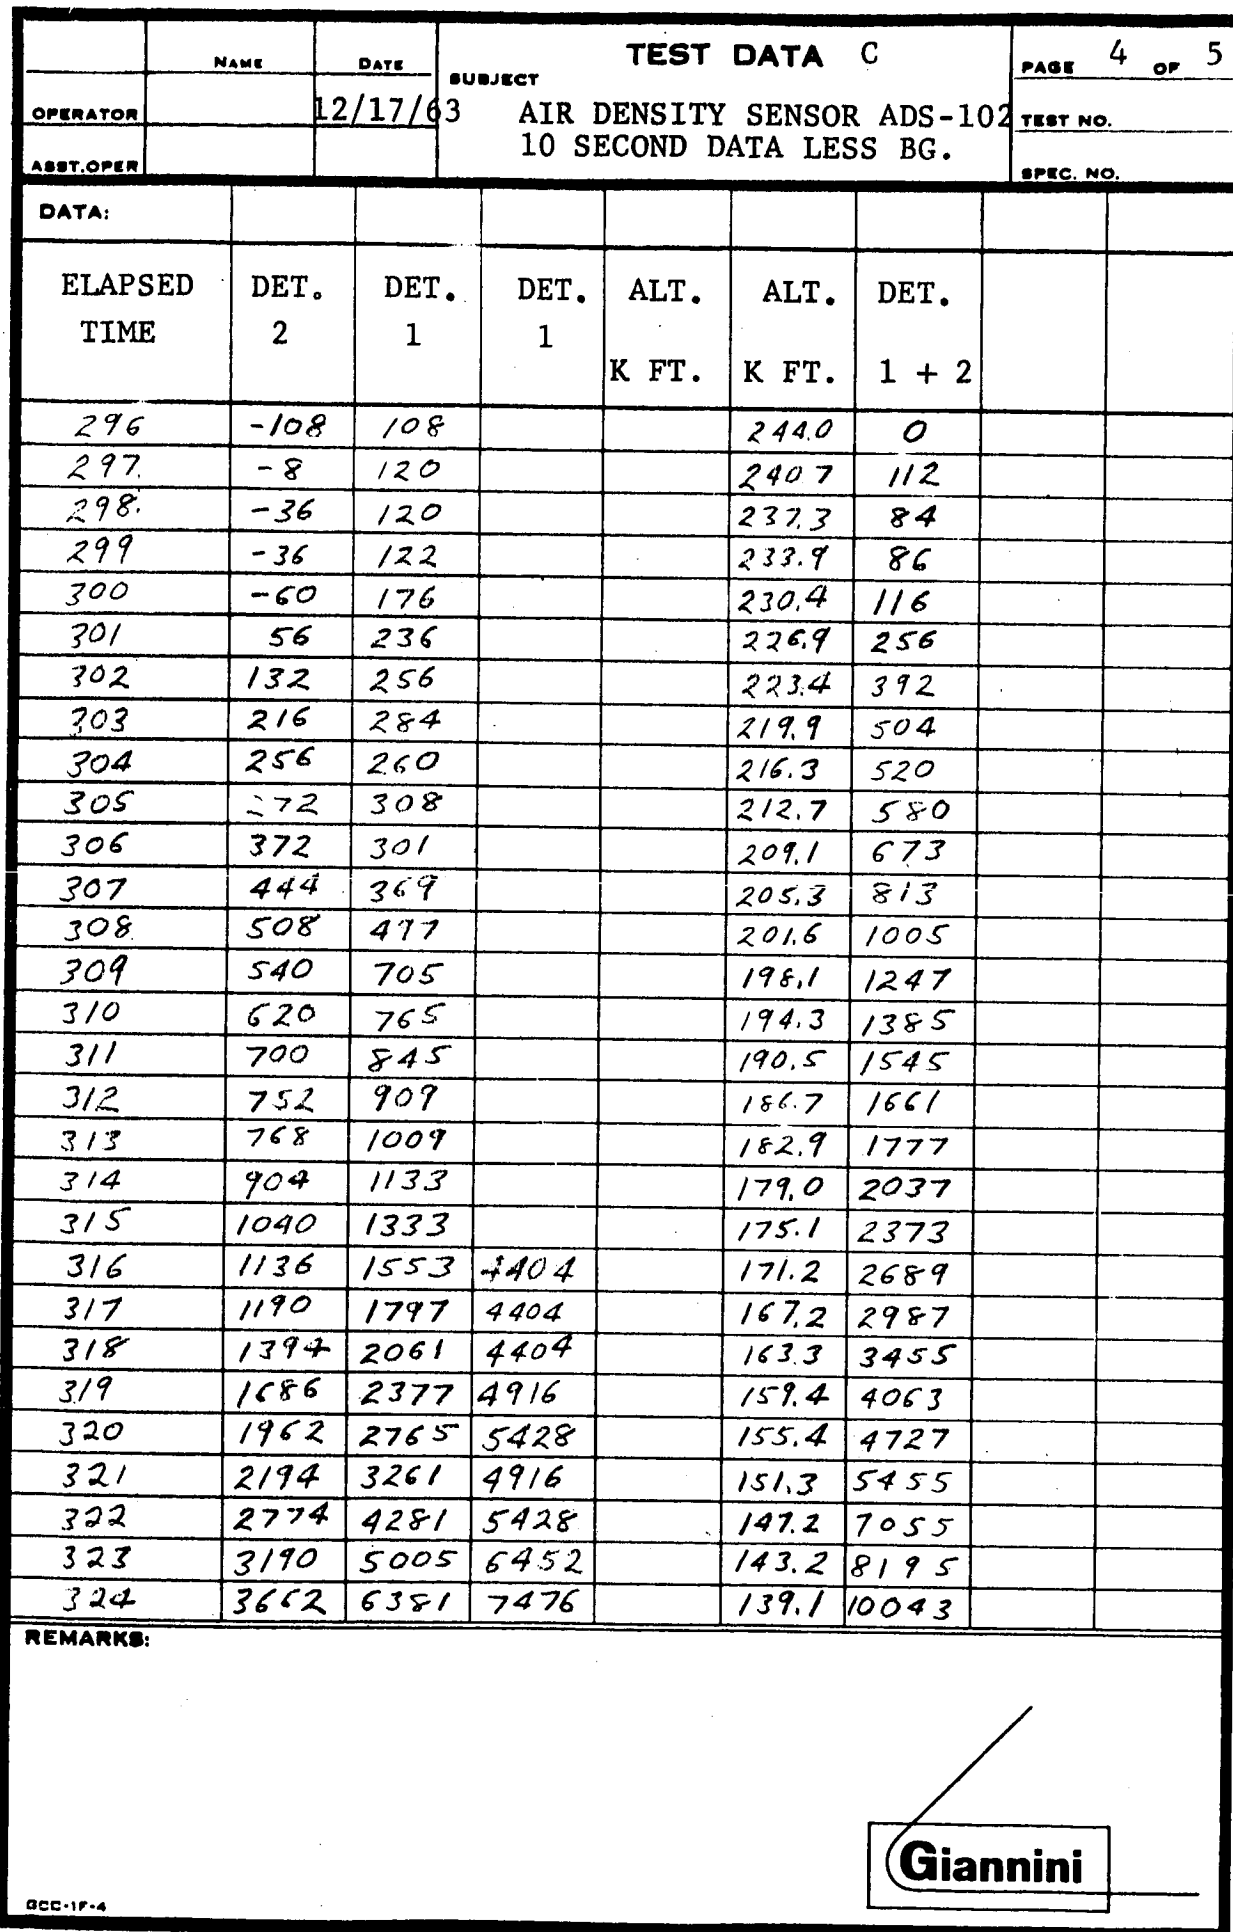 NAME DATE TEST DATA C PAGE 4 OF 5
SUBJECT
OPERATOR 12/17/63 AIR DENSITY SENSOR ADS-102 TEST NO.
10 SECOND DATA LESS BG.
ASST.OPER SPEC. NO.
DATA:
ELAPSED DET. DET. DET. ALT. ALT. DET.
TIME 2 1 1
K FT. K FT. 1 + 2
296 -108 108 244.0 0
297. -8 120 240 7 112
298. -36 120 237.3 84
299 -36 122 233.9 86
300 -60 176 230.4 116
301 56 236 226.9 256
302 132 256 223.4 392
303 216 284 219.9 504
304 256 260 216.3 520
305 272 308 212.7 580
306 372 301 209.1 673
307 444 369 205.3 813
308 508 497 201.6 1005
309 540 705 198.1 1247
310 620 765 194.3 1385
311 700 845 190.5 1545
312 752 909 186.7 1661
313 768 1009 182.9 1777
314 904 1133 179.0 2037
315 1040 1333 175.1 2373
316 1136 1553 4404 171.2 2689
317 1190 1797 4404 167.2 2987
318 1394 2061 4404 163.3 3455
319 1686 2377 4916 159.4 4063
320 1962 2765 5428 155.4 4727
321 2194 3261 4916 151.3 5455
322 2774 4281 5428 147.2 7055
323 3190 5005 6452 143.2 8195
324 3662 6381 7476 139.1 10043
REMARKS:
Giannini
GCC-1F-4